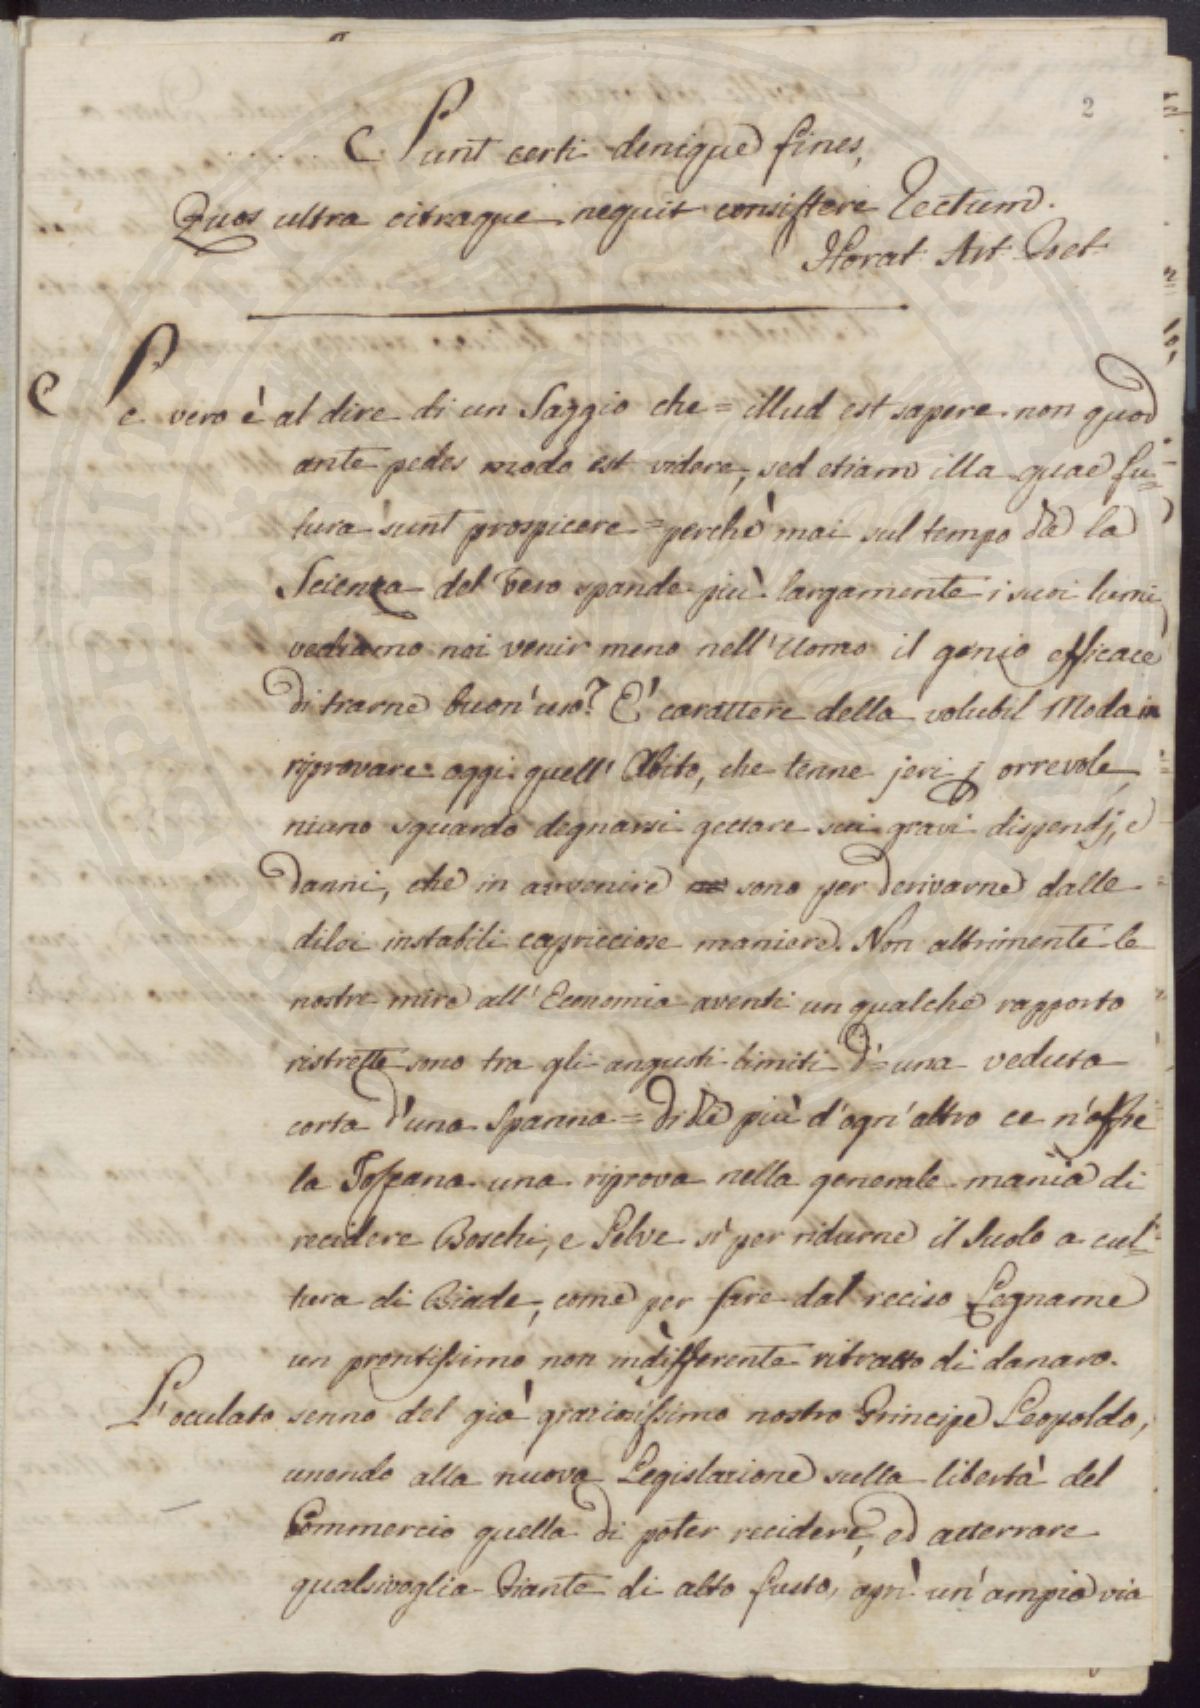 2
. . . . . . . Sunt certi denique fines,
Quos ultra citraque nequit consistere Rectum.
Horat. Art. Poet.
Se vero è al dire di un Saggio che = illud est sapere non quod
ante pedes modo est videre, sed etiam illa quae fu=
tura sunt prospicere = perchè mai sul tempo che la
Scienza del Vero spande più largamente i suoi lumi
vediamo noi venir meno nell'Uomo il genio efficace
di trarne buon'uso? E' carattere della volubil Moda in
riprovare oggi quell'Abito, che tenne jeri orrevole,
niuno sguardo degnarsi gettare sui gravi dispendj, e
danni, che in avvenire sono per derivarne dalle
dilei instabili capricciose maniere. Non altrimenti le
nostre mire all'Economia aventi un qualche rapporto
ristrette sono tra gli angusti limiti d'=una veduta
corta d'una spanna= Di che più d'ogn'altro ce n'offre
la Toscana una riprova nella generale manìa di
recidere Boschi, e Selve sì per ridurne il Suolo a cul=
tura di Biade, come per fare dal reciso Legname
un prontissimo non indifferente ritratto di danaro.
L'oculato senno del già graziosissimo nostro Principe Leopoldo,
unendo alla nuova Legislazione sulla libertà del
Commercio quella di poter recidere, ed atterrare
qualsivoglia Piante di alto fusto, aprì un'ampia via